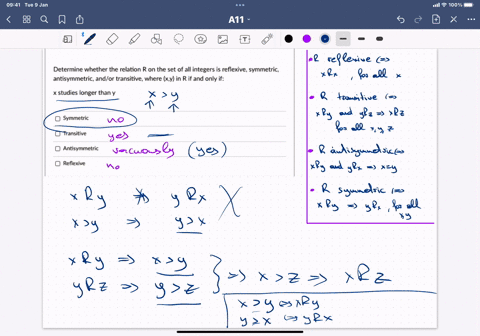 09:41 Tue 9 Jan
A11
100%
Determine whether the relation R on the set of all integers is reflexive, symmetric,
antisymmetric, and/or transitive, where (x,y) in R if and only if:
x studies longer than y
x > y
↑ ↑
Symmetric no
Transitive yes
Antisymmetric vacuously (yes)
Reflexive no
• R reflexive ⇔
xRx, for all x
• R transitive ⇔
xRy and yRz ⇒ xRz
for all x, y, z
• R antisymmetric ⇔
xRy and yRx ⇒ x=y
• R symmetric ⇔
xRy ⇒ yRx, for all
x,y
xRy ⇏ yRx
x>y ⇒ y>x
xRy ⇒ x>y
yRz ⇒ y>z
} ⇒ x>z ⇒ xRz
x>y ⇔ xRy
y>x ⇔ yRx